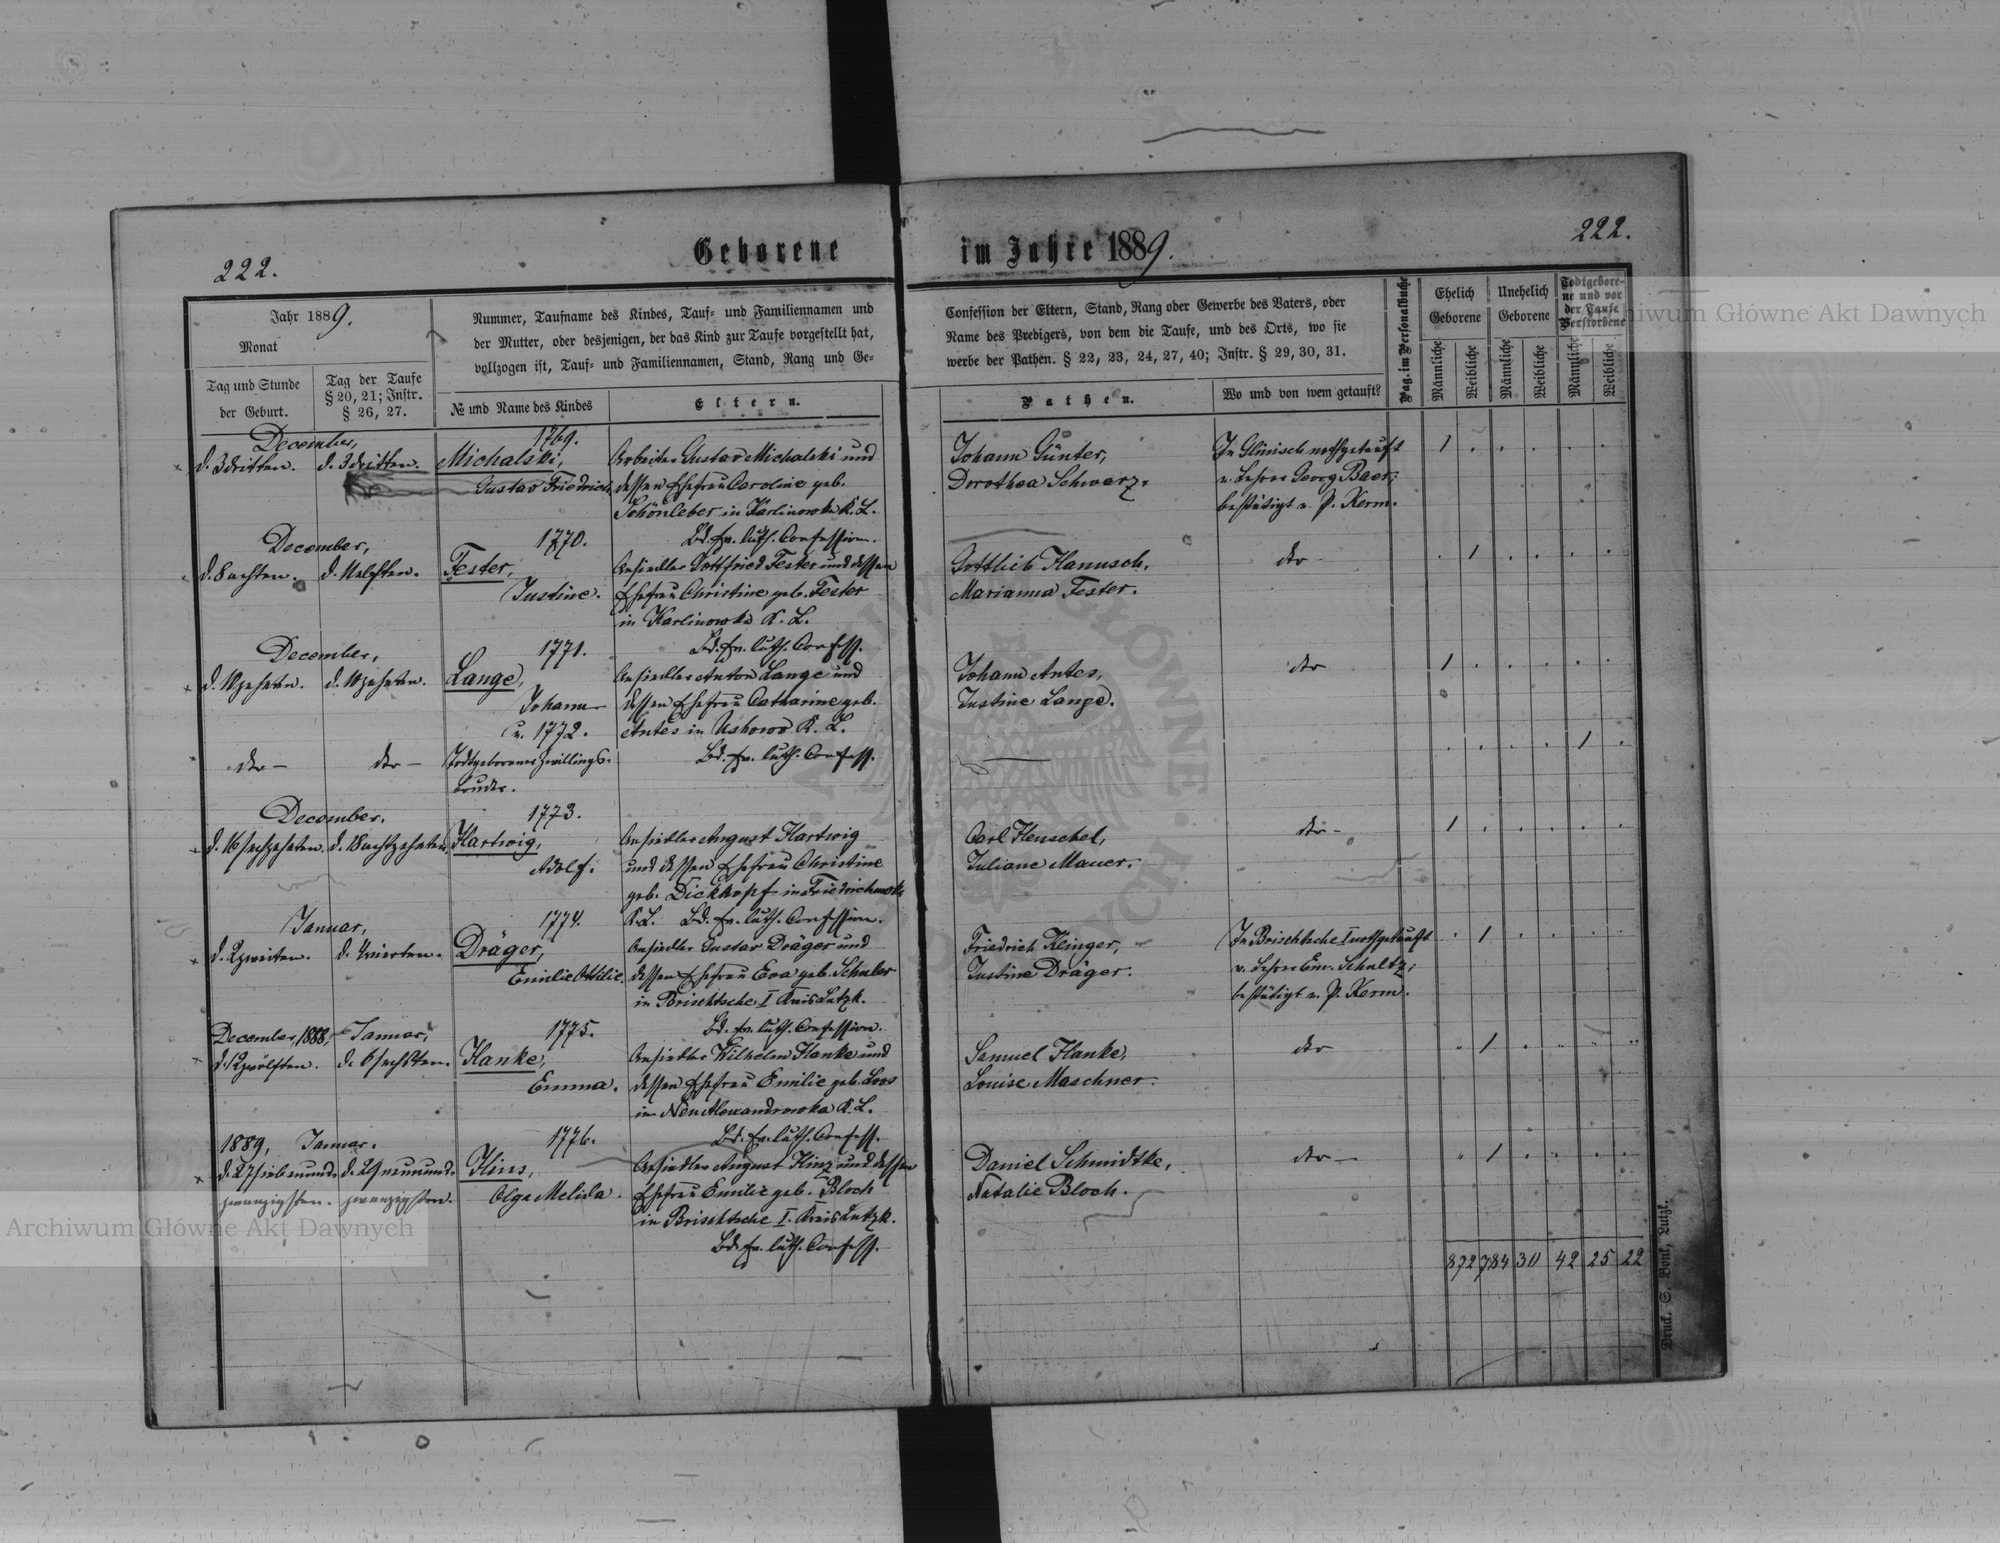 222.
Geborene
im Jahre 1889.
222.
Jahr 1889.
Monat
Tag und Stunde
der Geburt.
Tag der Taufe
§ 20, 21; Instr.
§ 26, 27.
Nummer, Taufname des Kindes, Tauf- und Familiennamen und
der Mutter, oder desjenigen, der das Kind zur Taufe vorgestellt hat,
vollzogen ist, Tauf- und Familiennamen, Stand, Rang und Ge-
№ und Name des Kindes
Eltern.
Confession der Eltern, Stand, Rang oder Gewerbe des Vaters, oder
Name des Predigers, von dem die Taufe, und des Orts, wo sie
werbe der Pathen. § 22, 23, 24, 27, 40; Instr. § 29, 30, 31.
Pathen.
Wo und von wem getauft?
Pag. im Personalbuche
Ehelich
Geborene
Unehelich
Geborene
Todtgebore-
ne und vor
der Taufe
Verstorbene
Männliche
Weibliche
Männliche
Weibliche
Männliche
Weibliche
December,
d. 3 dritten. d. 3 dritten.
1769.
Michalski,
Gustav Friedrich,
Arbeiter Gustav Michalski und
dessen Ehefrau Caroline geb.
Schönleber in Karlinowka K. L.
Bd. ev. luth. Confession.
Johann Günter,
Dorothea Schwarz.
nothgetauft
v. Lehrer Georg Baer;
bestätigt v. P. Kerm.
1
December,
d. 8 achten. d. 11 elften.
1770.
Tester,
Justine.
Ansiedler Gottfried Tester und dessen
Ehefrau Christine geb. Tester
in Karlinowka K. L.
Bd. ev. luth. Confess.
Gottlieb Hanusch,
Marianna Tester.
dto
1
December,
d. 10 zehnten. d. 10 zehnten.
1771.
Lange,
Johann
u. 1772.
Ansiedler Anton Lange und
dessen Ehefrau Catharine geb.
Antes in Ushowo K. L.
Bd. ev. luth. Confess.
Johann Antes,
Justine Lange.
dto
1
dto — dto —
Todtgeborener Zwillings-
bruder.
1
December.
d. 16 sechzehnten. d. 18 achtzehnten.
1773.
Hartwig,
Adolf.
Ansiedler August Hartwig
und dessen Ehefrau Christine
geb. Dickkopf in Friedrichowka
K. L. Bd. ev. luth. Confession.
Carl Henschel,
Juliane Mauer.
dto
1
Januar,
d. 2 zweiten. d. 4 vierten.
1774.
Dräger,
Emilie Ottilie.
Ansiedler Gustav Dräger und
dessen Ehefrau Eva geb. Schuler
in Brischtsche I Kreis Lutzk.
Bd. ev. luth. Confession.
Friedrich Klinger,
Justine Dräger.
In Brischtsche I nothgetauft
v. Lehrer Em. Schultz;
bestätigt v. P. Kerm.
1
December, 1888. Januar,
d. 12 zwölften. d. 6 sechsten.
1775.
Hanke,
Emma.
Ansiedler Wilhelm Hanke und
dessen Ehefrau Emilie geb. Loos
in Neu Alexandrowka K. L.
Bd. ev. luth. Confess.
Samuel Hanke,
Louise Maschner.
dto
1
1889, Januar.
d. 27 siebenund- d. 29 neunund-
zwanzigsten. zwanzigsten.
1776.
Hins,
Olga Melida.
Ansiedler August Hinz und dessen
Ehefrau Emilie geb. Bloch
in Brischtsche I. Kreis Lutzk.
Bd. ev. luth. Confess.
Daniel Schmidtke,
Natalie Bloch.
dto —
1
872 784 30 42 25 22
Druck. S. Bonk, Lutzk.
Archiwum Główne Akt Dawnych
Archiwum Główne Akt Dawnych